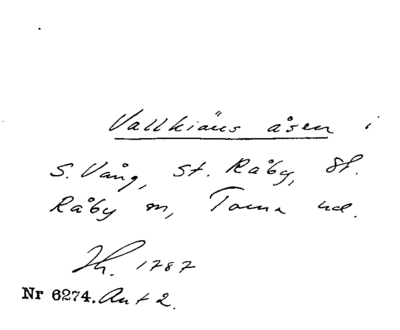 Vallkiäns åsen i
S. Vång, St. Råby, St.
Råby m, Torna hd.
Jh. 1787
Nr 6274. Akt 2.